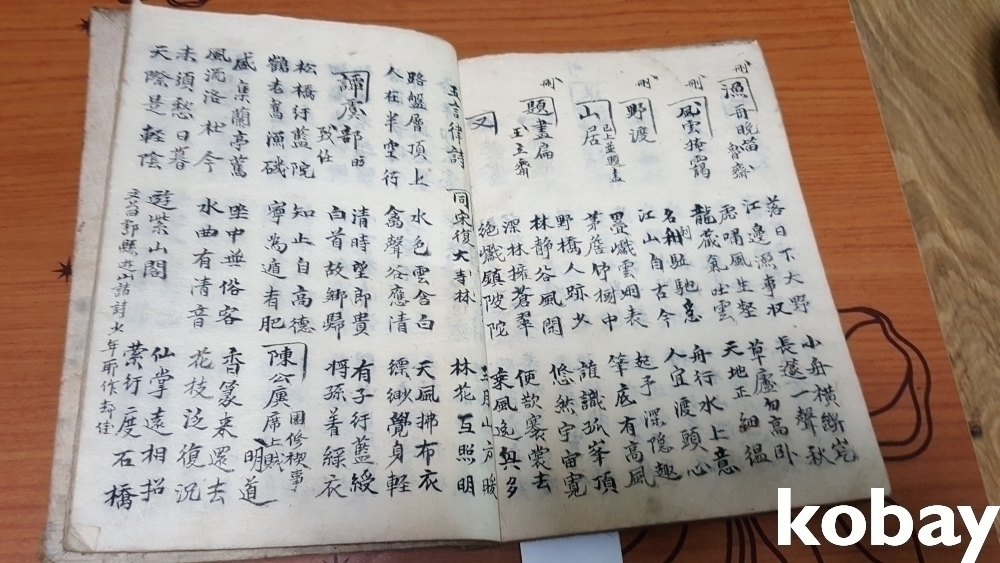 刪 漁哥晩笛 魯齋 落日下大野 小舟橫斷岸
江邊漁事收 長邊一聲秋
刪 風雲掩靄 虎嘯風生壑 草廬勿高臥
龍藏氣吐雲 天地正細縕
刪 野渡 名利驅馳急 舟行水上意
江山自古今 人宜渡頭心
山居 已上並題畫 疊巘雲烟表 起予深隱趣
茅茨竹樹中 筆底有高風
刪 題畫扁 王主齋 野橋人跡少 誰識孤峯頂
林静谷風閑 悠然宇宙寬
又 深林擁蒼翠 便欲褰裳去
絕巘鎮陂陀 乘風逸與多
五言律詩 同宋復大寺林 林花互照明
路盤層頂上 水色雲含白 天風拂布衣
人在半空行 禽聲谷應清 縹緲覺身輕
譚虞部昉 致仕 清時望郎貴 有子行藍綬
白首故鄉歸 將孫着綵衣
松橋行藍院 知止自高德 陳公廙 園修禊事 席上賦 明道
鶴老舊漁磯 寧爲遁者肥
盛集蘭亭舊 坐中無俗客 香篆來還去
風流洛社今 水曲有清音 花枝泛復沉
未須愁日暮 遊紫山閣 仙掌遠相招
天際是輕陰 山諸詩少年所作 縈行一度石橋
kobay